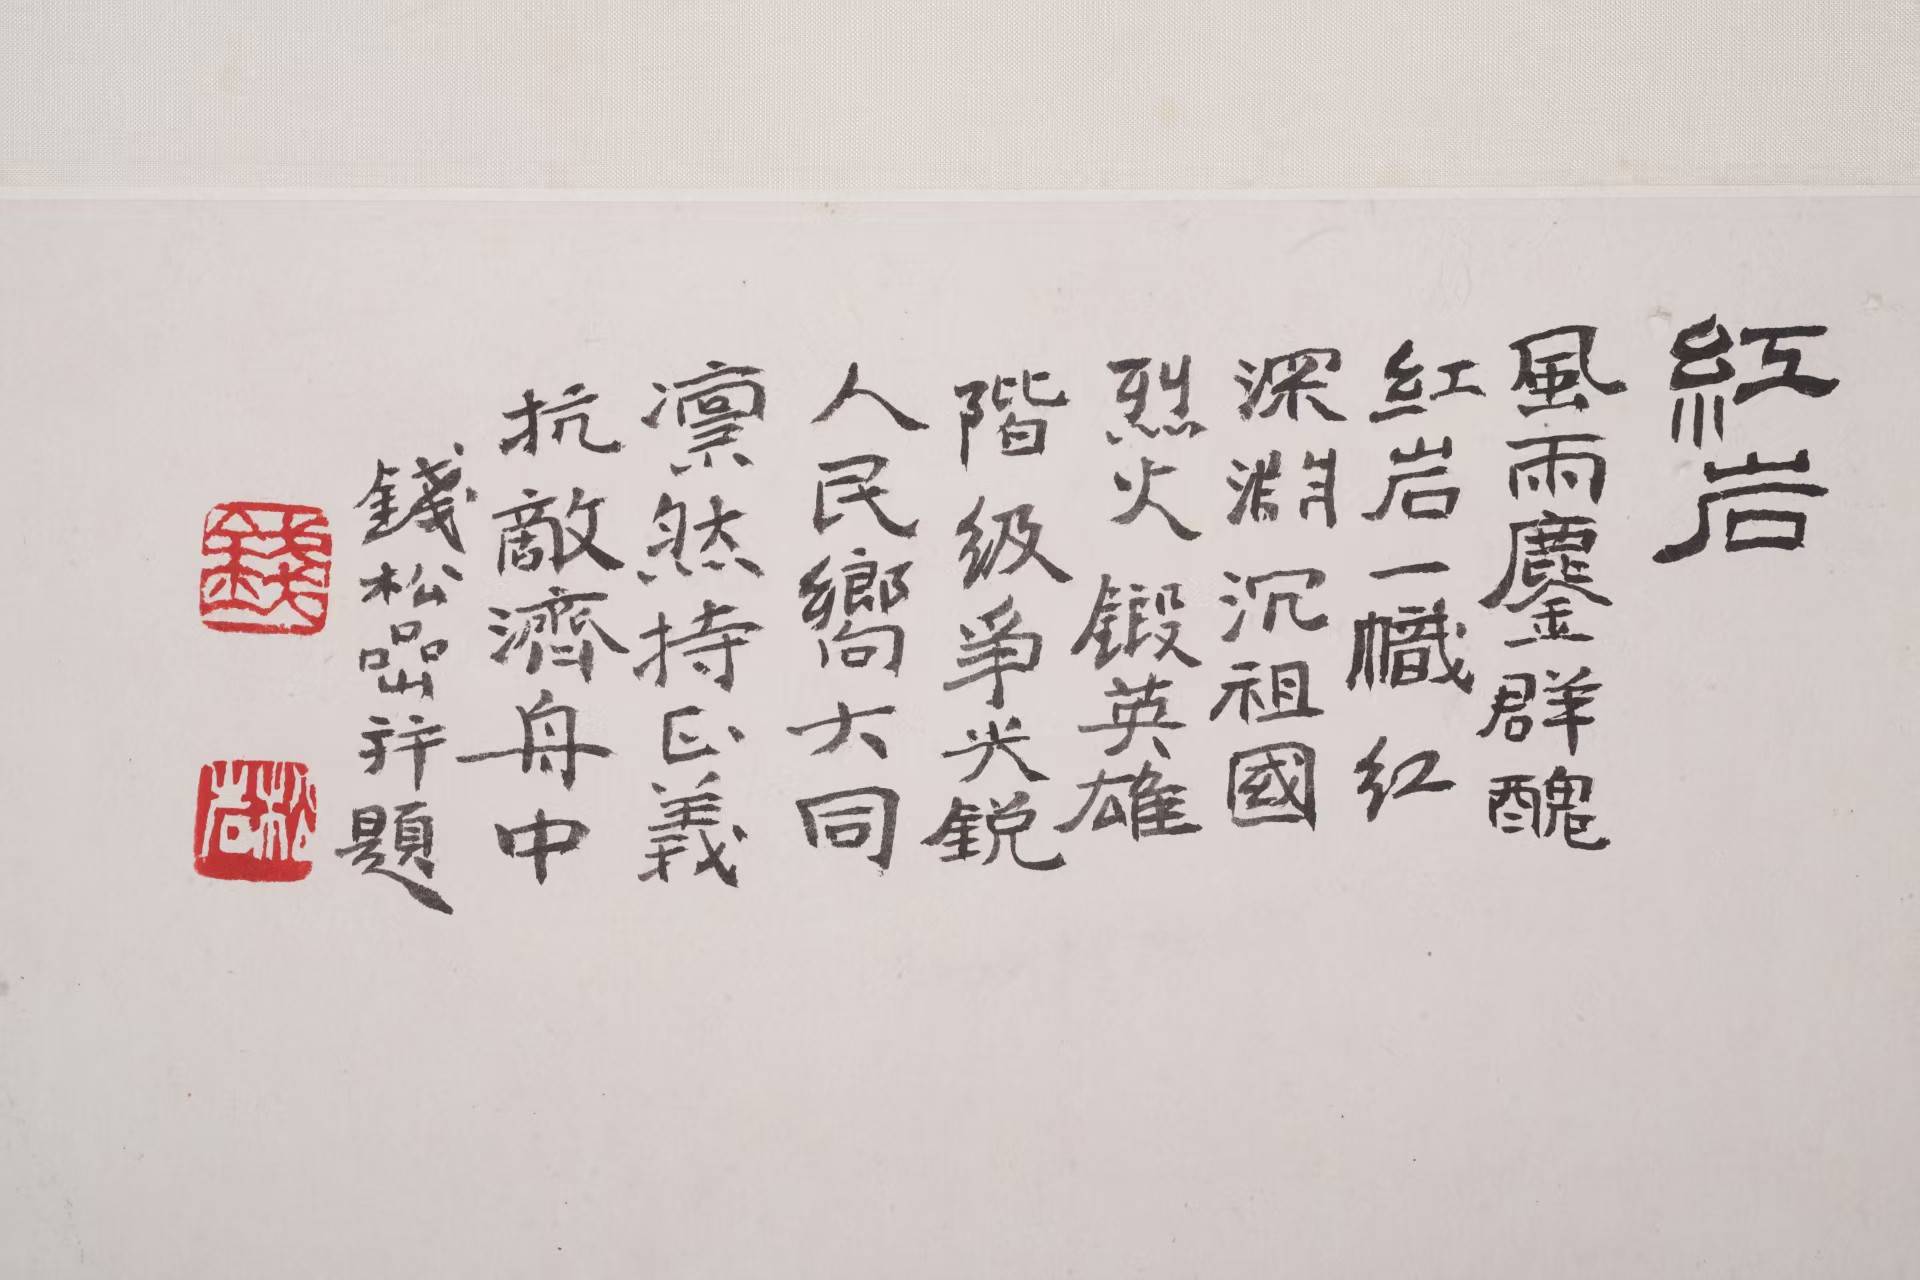 紅岩
風雨鏖群醜
紅岩一幟紅
深淵沉祖國
烈火鍛英雄
階級爭尖銳
人民嚮大同
凛然持正義
抗敵濟舟中
錢松嵒并題
錢
松岩